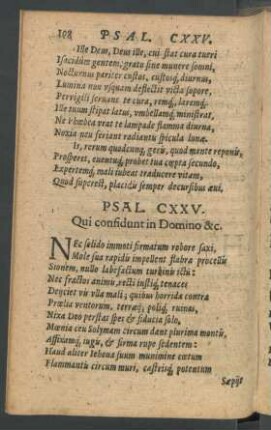 108 PSAL. CXXV.
Ille Deus, Deus ille, cui stat cura tueri
Isacidûm gentem, gratu sine munere somni,
Nocturnus pariter custos, custosq; diurnus,
Lumina non vsquam deflectit victa sopore,
Pervigili servans te cura, remq; laremq;
Ille tuum stipat latus, vmbellamq; ministrat,
Ne Phœbea vrat te lampade flamma diurna,
Noxia neu feriant radiantis spicula lunæ.
Is, rerum quodcunq; geris, quod mente reponis,
Prosperet, eventuq; probet tua cœpta secundo,
Expertemq; mali iubeat traducere vitam,
Quod superest, placidis semper decursibus ævi.
PSAL. CXXV.
Qui confidunt in Domino &c.
NEc solido immoti firmatum robore saxi,
Mole sua rapidis impellent flabra procellis
Sionem, nullo labefactum turbinis ictu:
Nec fractos animis, recti instiq; tenaces
Deijciet vis vlla mali; quibus horrida contra
Prælia ventorum, terræq;, poliq; ruinas,
Nixa Deo perstas spes & fiducia solo,
Mœnia ceu Solymam circum dant plurima montis,
Affixamq; iugis, & firma rupe sedentem:
Haud aliter Iehova suum munimine cœtum
Flammantis circum muri, castrisq; potentum
Sæpijt